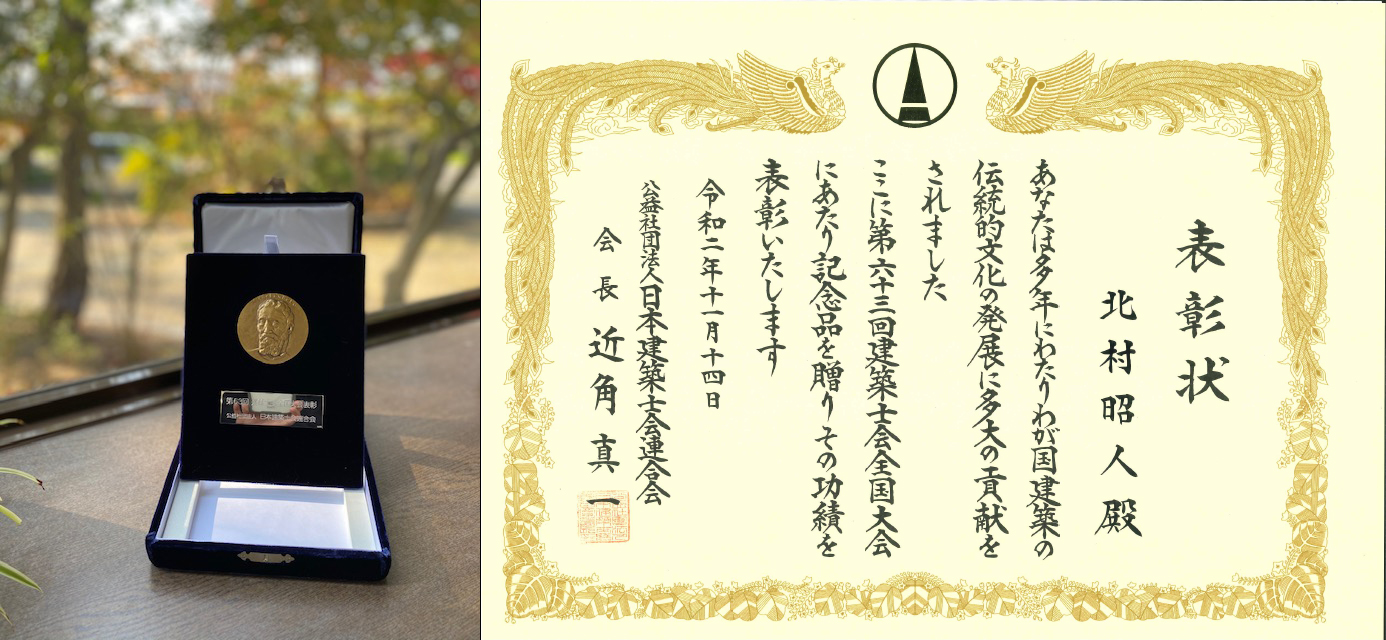 第63回
表彰
公益社団法人 日本建築士会連合会
表彰状
北村昭人殿
あなたは多年にわたりわが国建築の
伝統的文化の発展に多大の貢献を
されました
ここに第六十三回建築士会全国大会
にあたり記念品を贈りその功績を
表彰いたします
令和二年十一月十四日
公益社団法人日本建築士会連合会
会長 近角真一